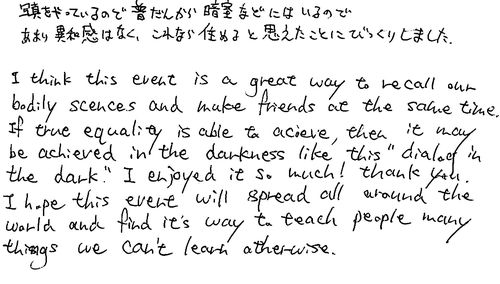 写真をやっているので普だんから暗室などにはいるので
あまり異和感はなく、これなら住めると思えたことにびっくりしました。
I think this event is a great way to recall our
bodily scences and make friends at the same time.
If true equality is able to acieve, then it may
be achieved in the darkness like this "dialog in
the dark." I enjoyed it so much! thank you.
I hope this event will spread all around the
world and find it's way to teach people many
things we can't learn otherwise.